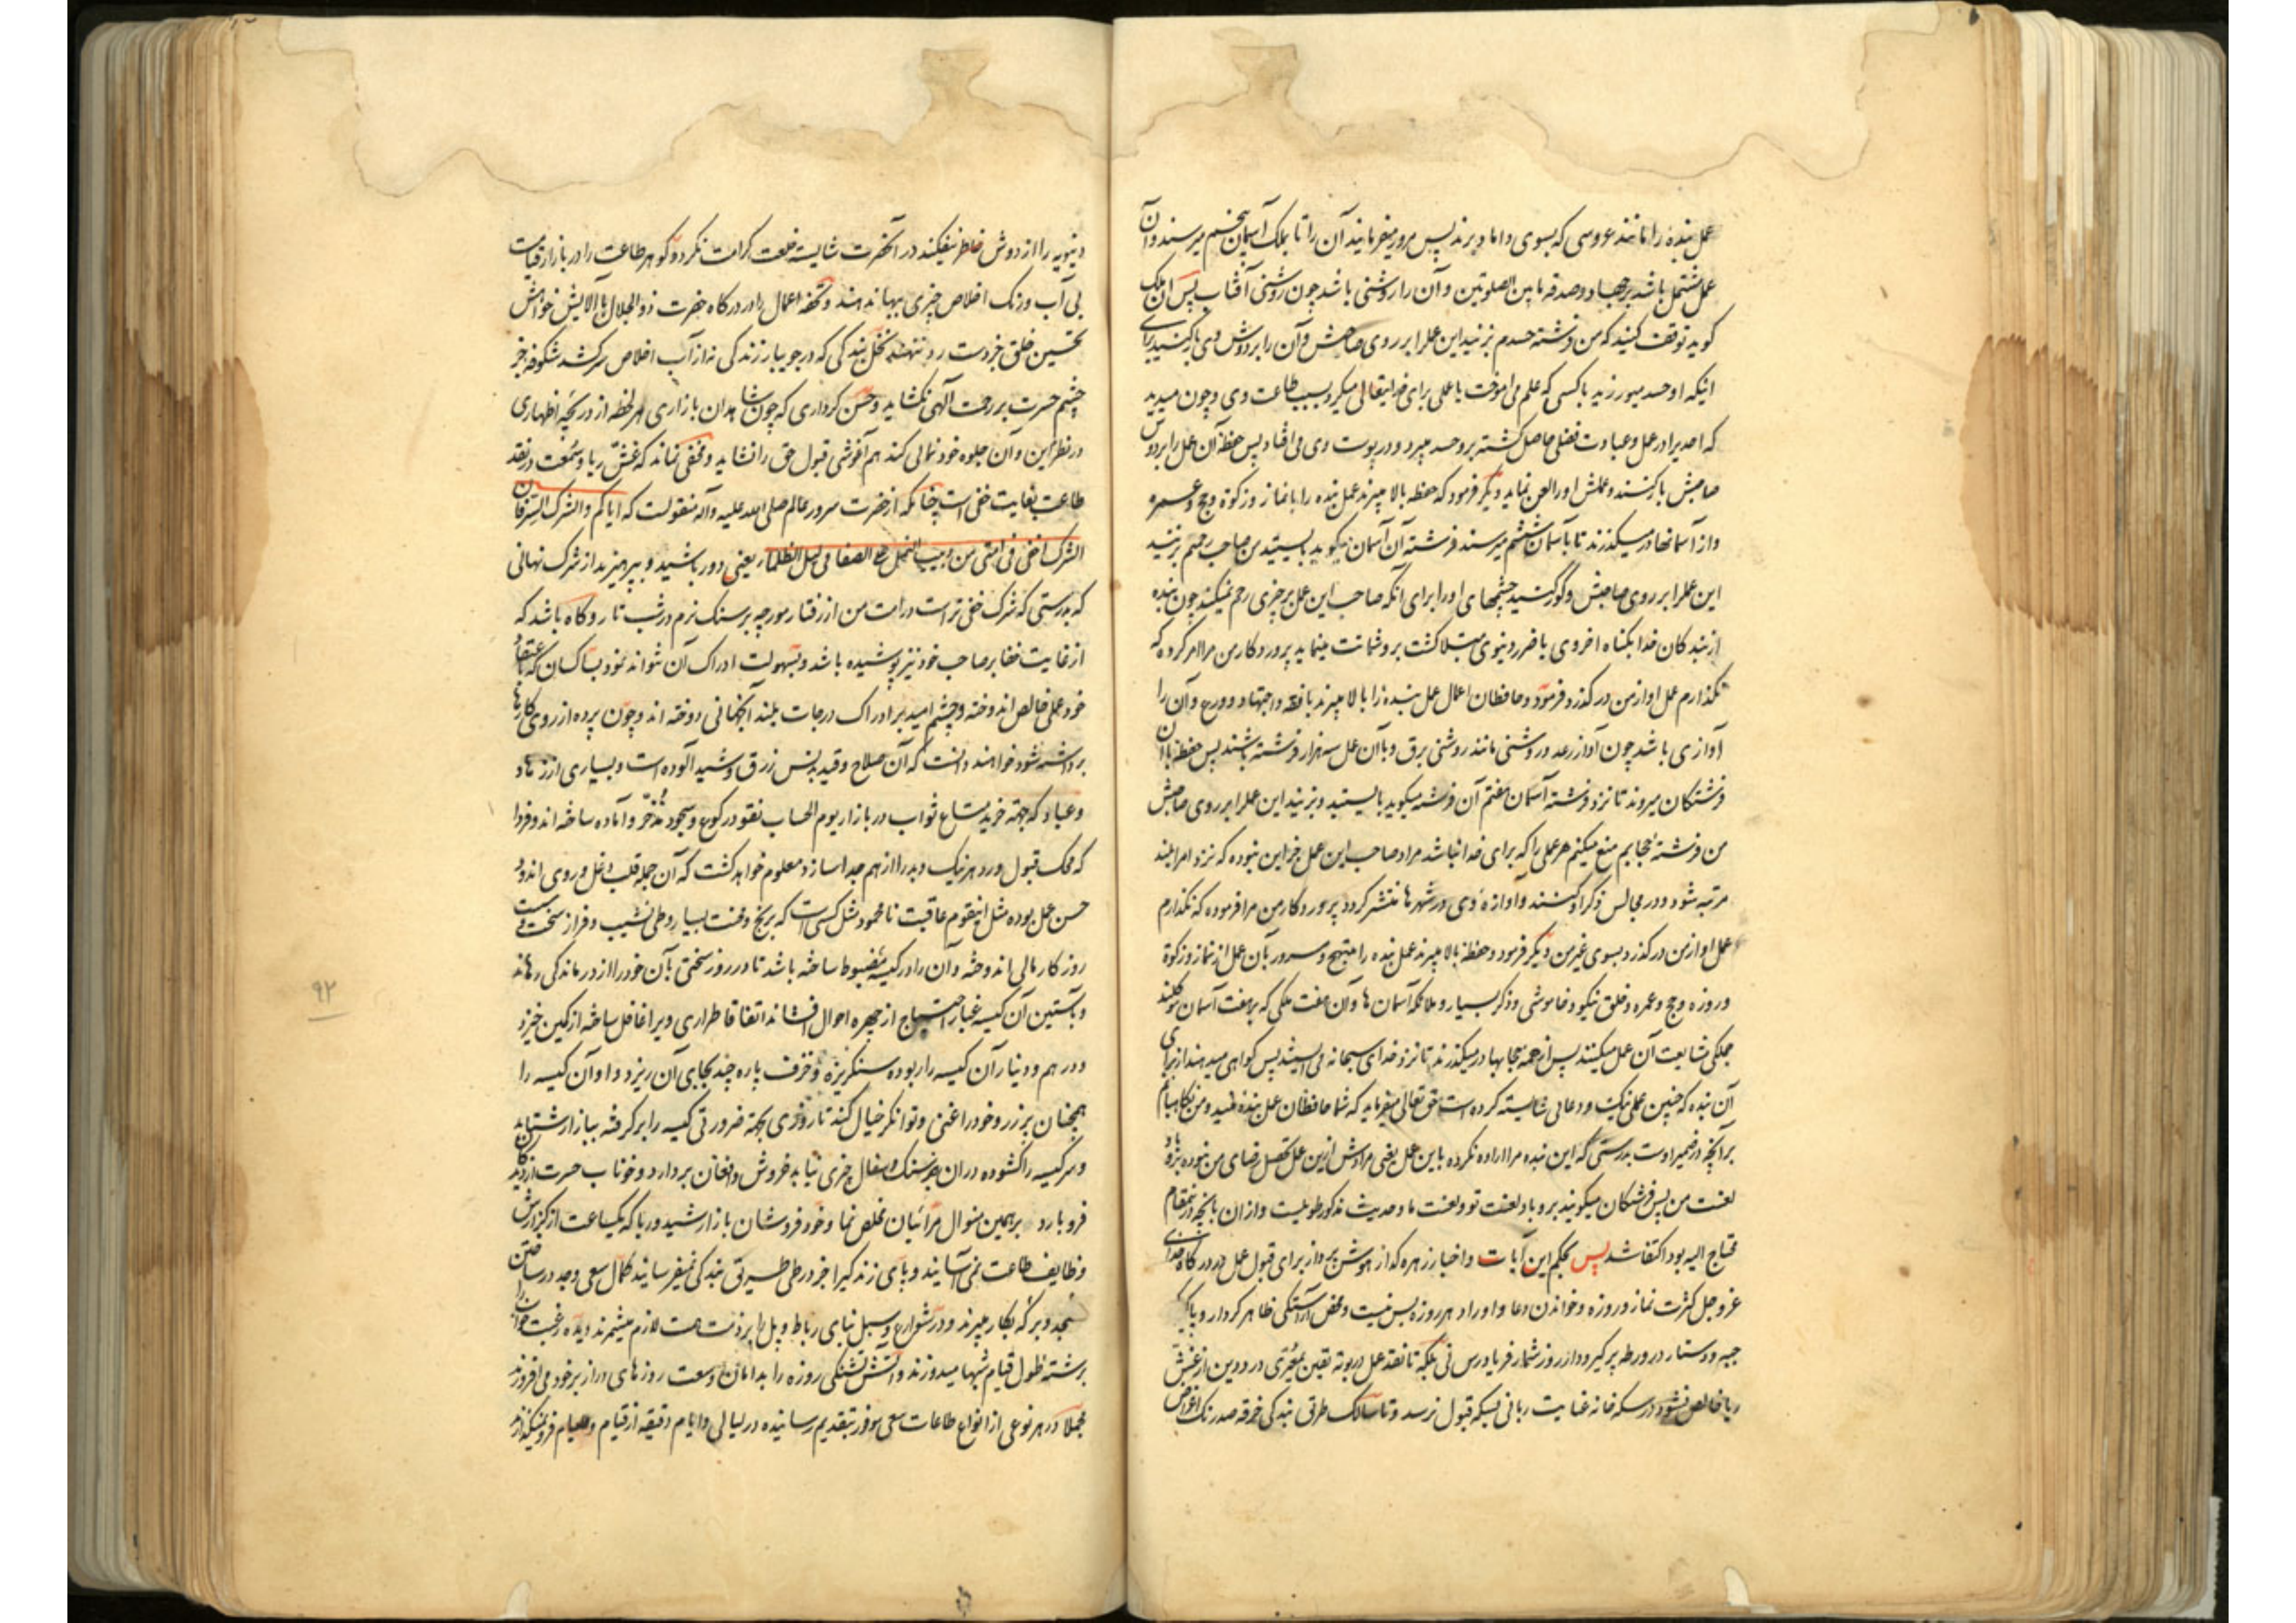 عمل بنده را مانند عروسی که بسوی داماد برند پس مرور میفرمایند آن را تا بملک آسمان پنجم میرسند و آن
عمل مشتمل باشد بر جهاد و صدقه مابین الصلوتین و آن را روشنی باشد چون روشنی آفتاب پس آن ملک
کوید توقف کنید که من فرشته حسدم بزنید این عمل را بر روی صاحبش و آن را بر دوش وی بار کنید برای
اینکه او حسد میورزید با کسی که علم می اموخت یا عملی برای خدایتعالی میکرد بسبب طاعت وی و چون میدید
که احدیرا در عمل و عبادت فضلی حاصل کشته برو حسد میبرد و در پوست وی می افتاد پس حفظه آن عمل را بر دوش
صاحبش بار کنند و عملش اورا لعن نماید دیگر فرمود که حفظه بالا میبرند عمل بنده را با نماز و زکوة و حج و عمره
و از آسمانها در میگذرند تا بآسمان ششم میرسند فرشته آن آسمان میگوید بایستید من صاحب رحمم بزنید
این عمل را بر روی صاحبش و کور کنید چشمهای اورا برای آنکه صاحب این عمل بر چیزی رحم نمیکند چون بنده
از بندکان خدا بکناه اخروی یا ضرر دنیوی مبتلا کشت برو شماتت مینماید پروردکار من مرا امر کرده که
نگذارم عمل او از من در گذرد و فرمود و حافظان اعمال عمل بنده را بالا میبرند با فقه و اجتهاد و ورع و آن را
آوازی باشد چون آواز رعد و روشنی مانند روشنی برق و با آن عمل سه هزار فرشته باشند پس حفظه با آن
فرشتکان میروند تا نزد فرشته آسمان هفتم آن فرشته میگوید بایستید و بزنید این عمل را بر روی صاحبش
من فرشته حجابم منع میکنم هر عملی را که برای خدا نباشد مراد صاحب این عمل جز این نبوده که نزد امرا بلند
مرتبه شود و در مجالس ذکر او کنند و آوازه وی در شهرها منتشر کردد پروردکار من مرا فرموده که نگذارم
عمل او از من در گذرد بسوی غیر من دیگر فرمود و حفظه بالا میبرند عمل بنده را مبتهج و مسرور بآن عمل از نماز و زکوة
و روزه و حج و عمره و خلق نیکو و خاموشی و ذکر بسیار و ملائکه آسمان ها و آن هفت ملکی که بهفت آسمان موکلند
جملکی مشایعت آن عمل میکنند پس از همه حجابها در میگذرند تا نزد خدای سبحانه می ایستند پس کواهی میدهند از برای
آن بنده که چنین عملی نیک و دعائی شایسته کرده است حق تعالی میفرماید که شما حافظان عمل بنده منید و من نکاهبانم
بر آنچه در ضمیر اوست بدرستی که این بنده مرا اراده نکرده باین عمل یعنی مرادش ازین عمل تحصیل رضای من نبوده برو باد
لعنت من پس فرشتکان میگویند برو باد لعنت تو و لعنت ما و حدیث مذکور طویلیست و از ان بآنچه درینمقام
محتاج الیه بود اکتفا شد پس بحکم این آیات و اخبار زهره کداز هوش پرداز برای قبول عمل در درکاه خدای
عز و جل کثرت نماز و روزه و خواندن دعا و اوراد هر روزه بس نیست و محض آراستکی ظاهر کردار و پاکی
جبه و دستار در ورطه پر گیر و دار روز شمار فریادرس نی بلکه تا نقد عمل در بوته یقین بمعیری درد دین از غش
ریا خالص نشود در سکه خانه عنایت ربانی بسکه قبول نرسد و تا سالک طریق بندکی خرقه صد رنک اغراض
دنیویه را از دوش خاطر نیفکند در آخرت شایسته خلعت کرامت نکردد و کوهر طاعت را در بازار قیامت
بی آب و رنک اخلاص چیزی ببها ندهند و تحفه اعمال را در درکاه حضرت ذوالجلال با آلایش خواهش
تحسین خلق جز دست رد ننهند نخل بندکی که در جویبار زندکی نه از آب اخلاص سر کشد شکوفه جز
چشم حسرت بر رحمت آلهی نکشاید و حسن کرداری که چون شاهدان بازاری هر لحظه از دریچه اظهاری
در نظر این و آن جلوه خود نمائی کند هم آغوشی قبول حق را نشاید و مخفی نماند که غش ریا و سمعت در نقد
طاعت بغایت خفی است چنانکه از حضرت سرور عالم صلی الله علیه و آله منقولست که ایاکم و الشرک السر فان
الشرک اخفی فی امتی من دبیب النمل علی الصفا فی لیل الظلماء یعنی دور باشید و بپرهیزید از شرک نهانی
که بدرستی که شرک خفی تر است در امت من از رفتار مورچه بر سنک نرم در شب تار و کاه باشد که
از غایت خفا بر صاحب خود نیز پوشیده باشد و بسهولت ادراک آن نتواند نمود بسا کسان که باعتقاد
خود عملی خالص اندوخته و چشم امید بر ادراک درجات بلند آنجهانی دوخته اند و چون پرده از روی کارها
برداشته شود خواهند دانست که آن صلاح و قید بدنس زرق و شید آلوده است و بسیاری از زهاد
و عباد که جهة خرید متاع ثواب در بازار یوم الحساب نقود رکوع و سجود مذخر و آماده ساخته اند و فردا
که محک قبول و رد هر نیک و بد را از هم جدا سازد معلوم خواهد کشت که آن جمله قلب و دغل و روی اندود
حسن عمل بوده مثل اینقوم عاقبت نا محمود مثل کسی است که برنج و محنت بسیار و طی نشیب و فراز سخت و سست
روزکار مالی اندوخته و آن را در کیسه مضبوط ساخته باشد تا در روز سختی بآن خود را از درماندکی رهاند
و بآستین آن کیسه غبار احتیاج از چهره احوال افشاند اتفاقا طراری ویرا غافل ساخته از کمین خیزد
و درهم و دینار آن کیسه را ربوده سنکریزه و خزف پاره چند بجای آن ریزد و او آن کیسه را
همچنان پر زر و خود را غنی و توانکر خیال کند تا روزی بجهة ضرورتی کیسه را بر گرفته ببازار شتابد
و سر کیسه را کشوده در ان بجز سنک و سفال چیزی نیابد خروش و افغان بردارد و خوناب حسرت از دیدکان
فرو بارد برهمین منوال مرائیان مخلص نما و خود فروشان بازار شید و ریا که یکساعت از کزارش
وظایف طاعت نمی آسایند و بپای زندکی را جز در طی طریق بندکی نمیفرسایند کمال سعی و جهد در ساختن
مسجد و برکه بکار میبرند و در شوارع و سبل بنای رباط و پل را بر ذمت همت لازم میشمرند و دیده رغبت خواب را
برشته طول قیام شبها میدوزند و آتش تشنکی روزه را بدامان وسعت روزهای دراز بر خود می افروزند
مجملا در هر نوعی از انواع طاعات سعی موفور بتقدیم رسانیده در لیالی و ایام دقیقه از قیام و صیام فرو نمیگذارند
۹۲